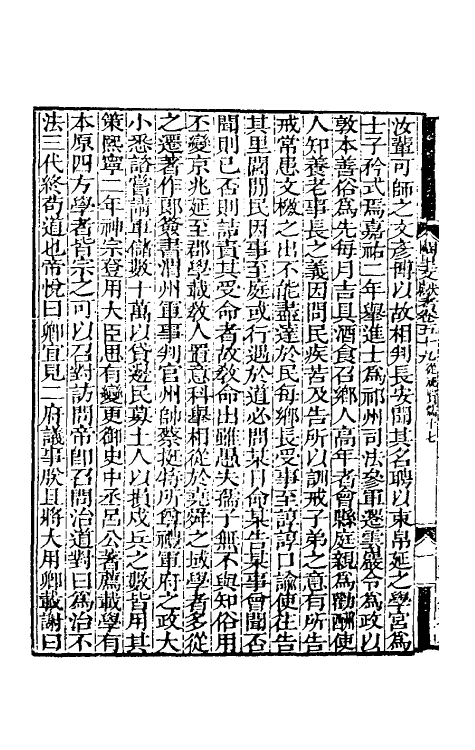 汝輩可師之文彥博以故相判長安聞其名聘以束帛延之學宮為
士子矜式焉嘉祐二年舉進士為祁州司法參軍遷雲巖令為政以
敦本善俗為先每月吉具酒食召鄉人高年者會縣庭親為勸酬使
人知養老事長之義因問民疾苦及告所以訓戒子弟之意有所告
戒常患文檄之出不能盡達於民每鄉長受事至諄諄口諭使往告
其里閭間民因事至庭或行遇於道必問某日命某告某事曾聞否
聞則已否則詰責其受命者故教命出雖愚夫孺子無不與知俗用
丕變京兆延至郡學載敎人置意科舉相從於堯舜之域學者多從
之遷著作郎簽書渭州軍事判官州帥蔡挺特所尊禮軍府之政大
小悉諮嘗請軍儲數十萬以貸邊民募土人以損戍兵之數皆用其
策熙寧二年神宗登用大臣思有變更御史中丞呂公著薦載學有
本原四方學者皆宗之可以召對訪問帝卽召問治道對曰為治不
法三代終苟道也帝悅曰卿宜見二府議事朕且將大用卿載謝曰